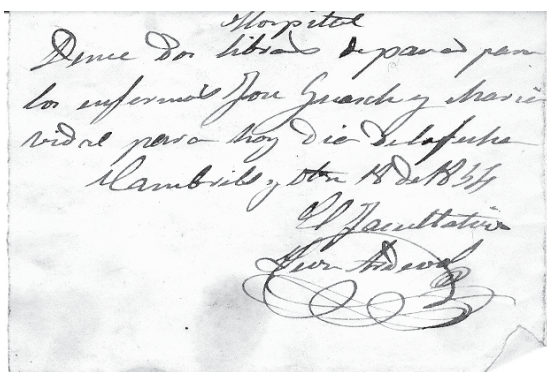 Hospital
Dence dos libras de pan para
los enfermos Jose Guasch y Maria
vidal para hoy dia de la fecha
Cambrils y Obre 18 de 1854
El Facultativo